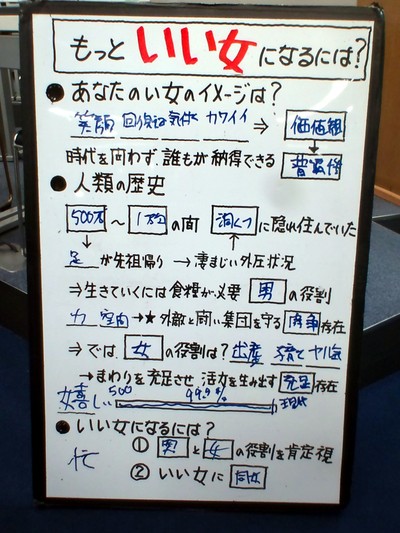 もっといい女になるには?
●あなたのいい女のイメージは?
笑顔 回復な気休め カワイイ ⇒ 価値観
時代を問わず、誰もが納得できる 普遍性
●人類の歴史
500万 ~ 1万 の間 洞くつ に隠れ住んでいた
足 が先祖帰り → 凄まじい外圧状況
⇒生きていくには食糧が必要 男 の役割
力 空間 →★外敵と闘い集団を守る 闘争 存在
⇒では、女 の役割は? 出産 子育て ヤル気
→まわりを充足させ、活力を生み出す 充足 存在
嬉しい 500 99.9% 現代
●いい女になるには?
① 男 と 女 の役割を肯定視
忙
② いい女に 同化